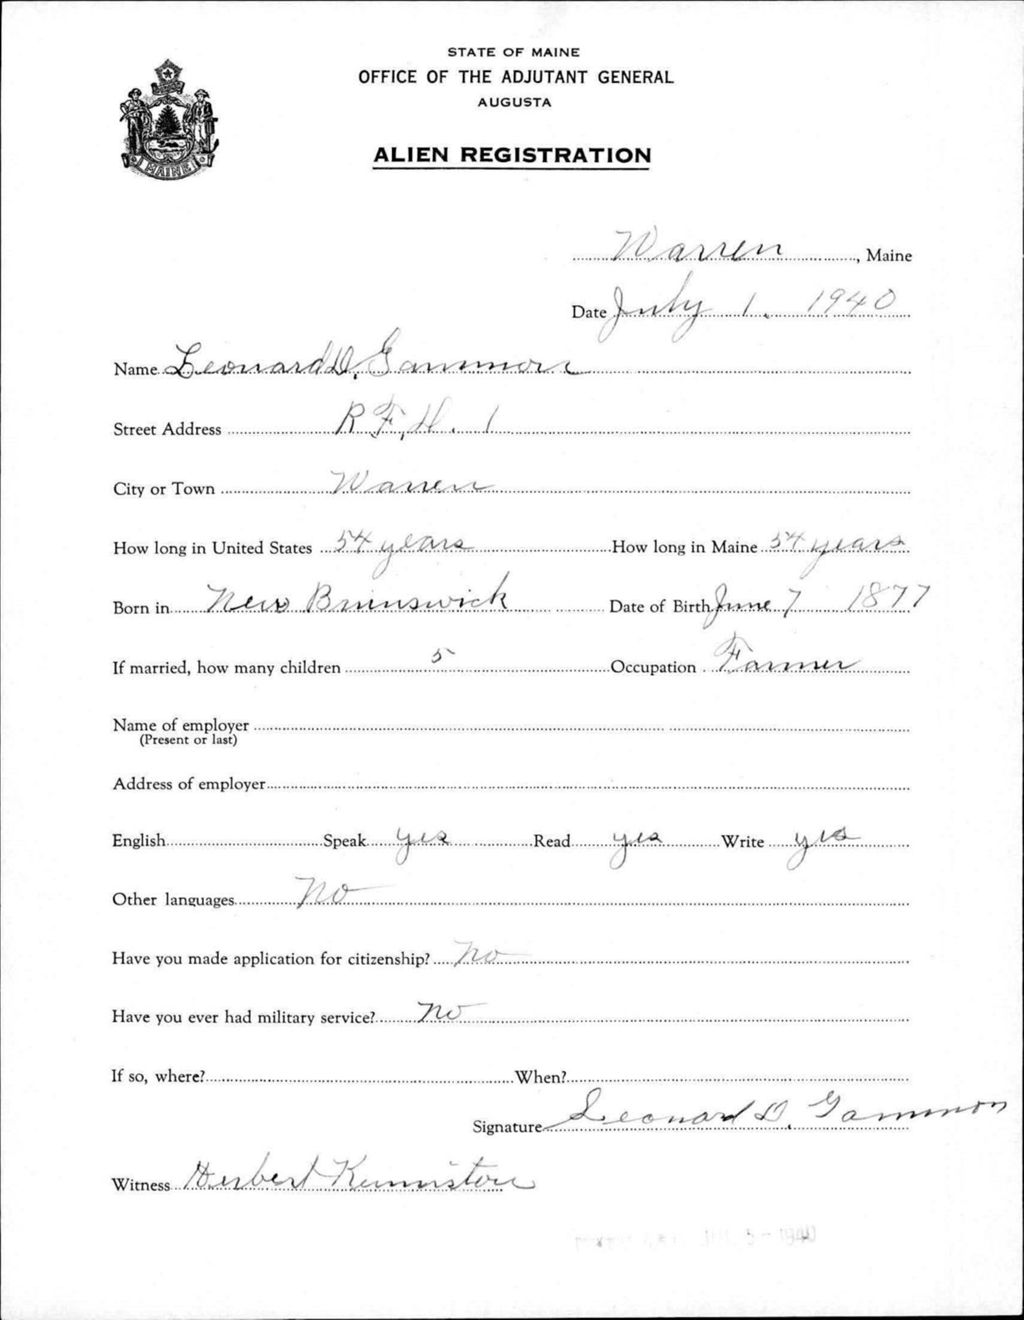 STATE OF MAINE
OFFICE OF THE ADJUTANT GENERAL
AUGUSTA
ALIEN REGISTRATION
MAINE
Warren, Maine
Date July 1. 1940
Name Leonard D. Gammon
Street Address R F, D. 1
City or Town Warren
How long in United States 54 years How long in Maine 54 years
Born in New Brunswick Date of Birth June 7 1877
If married, how many children 5 Occupation Farmer
Name of employer
(Present or last)
Address of employer
English Speak yes Read yes Write yes
Other languages No
Have you made application for citizenship? No
Have you ever had military service? No
If so, where? When?
Signature Leonard D. Gammon
Witness Herbert Kenniston
1940